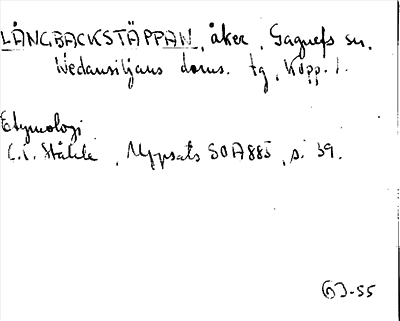 LÅNGBACKSTÄPPAN, åker, Gagnefs sn.
Nedansiljans doms. tg, Kopp. l.
Etymologi
C.I. Ståhle, Uppsats SOA 885, s. 39.
GJ-55